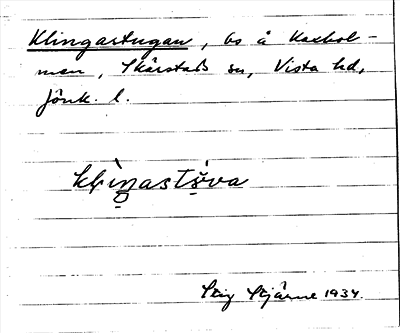 Klingastugan, bs å Kaxhol-
men, Skärstads sn, Vista hd,
Jönk. l.
Stig Stjärne 1934.